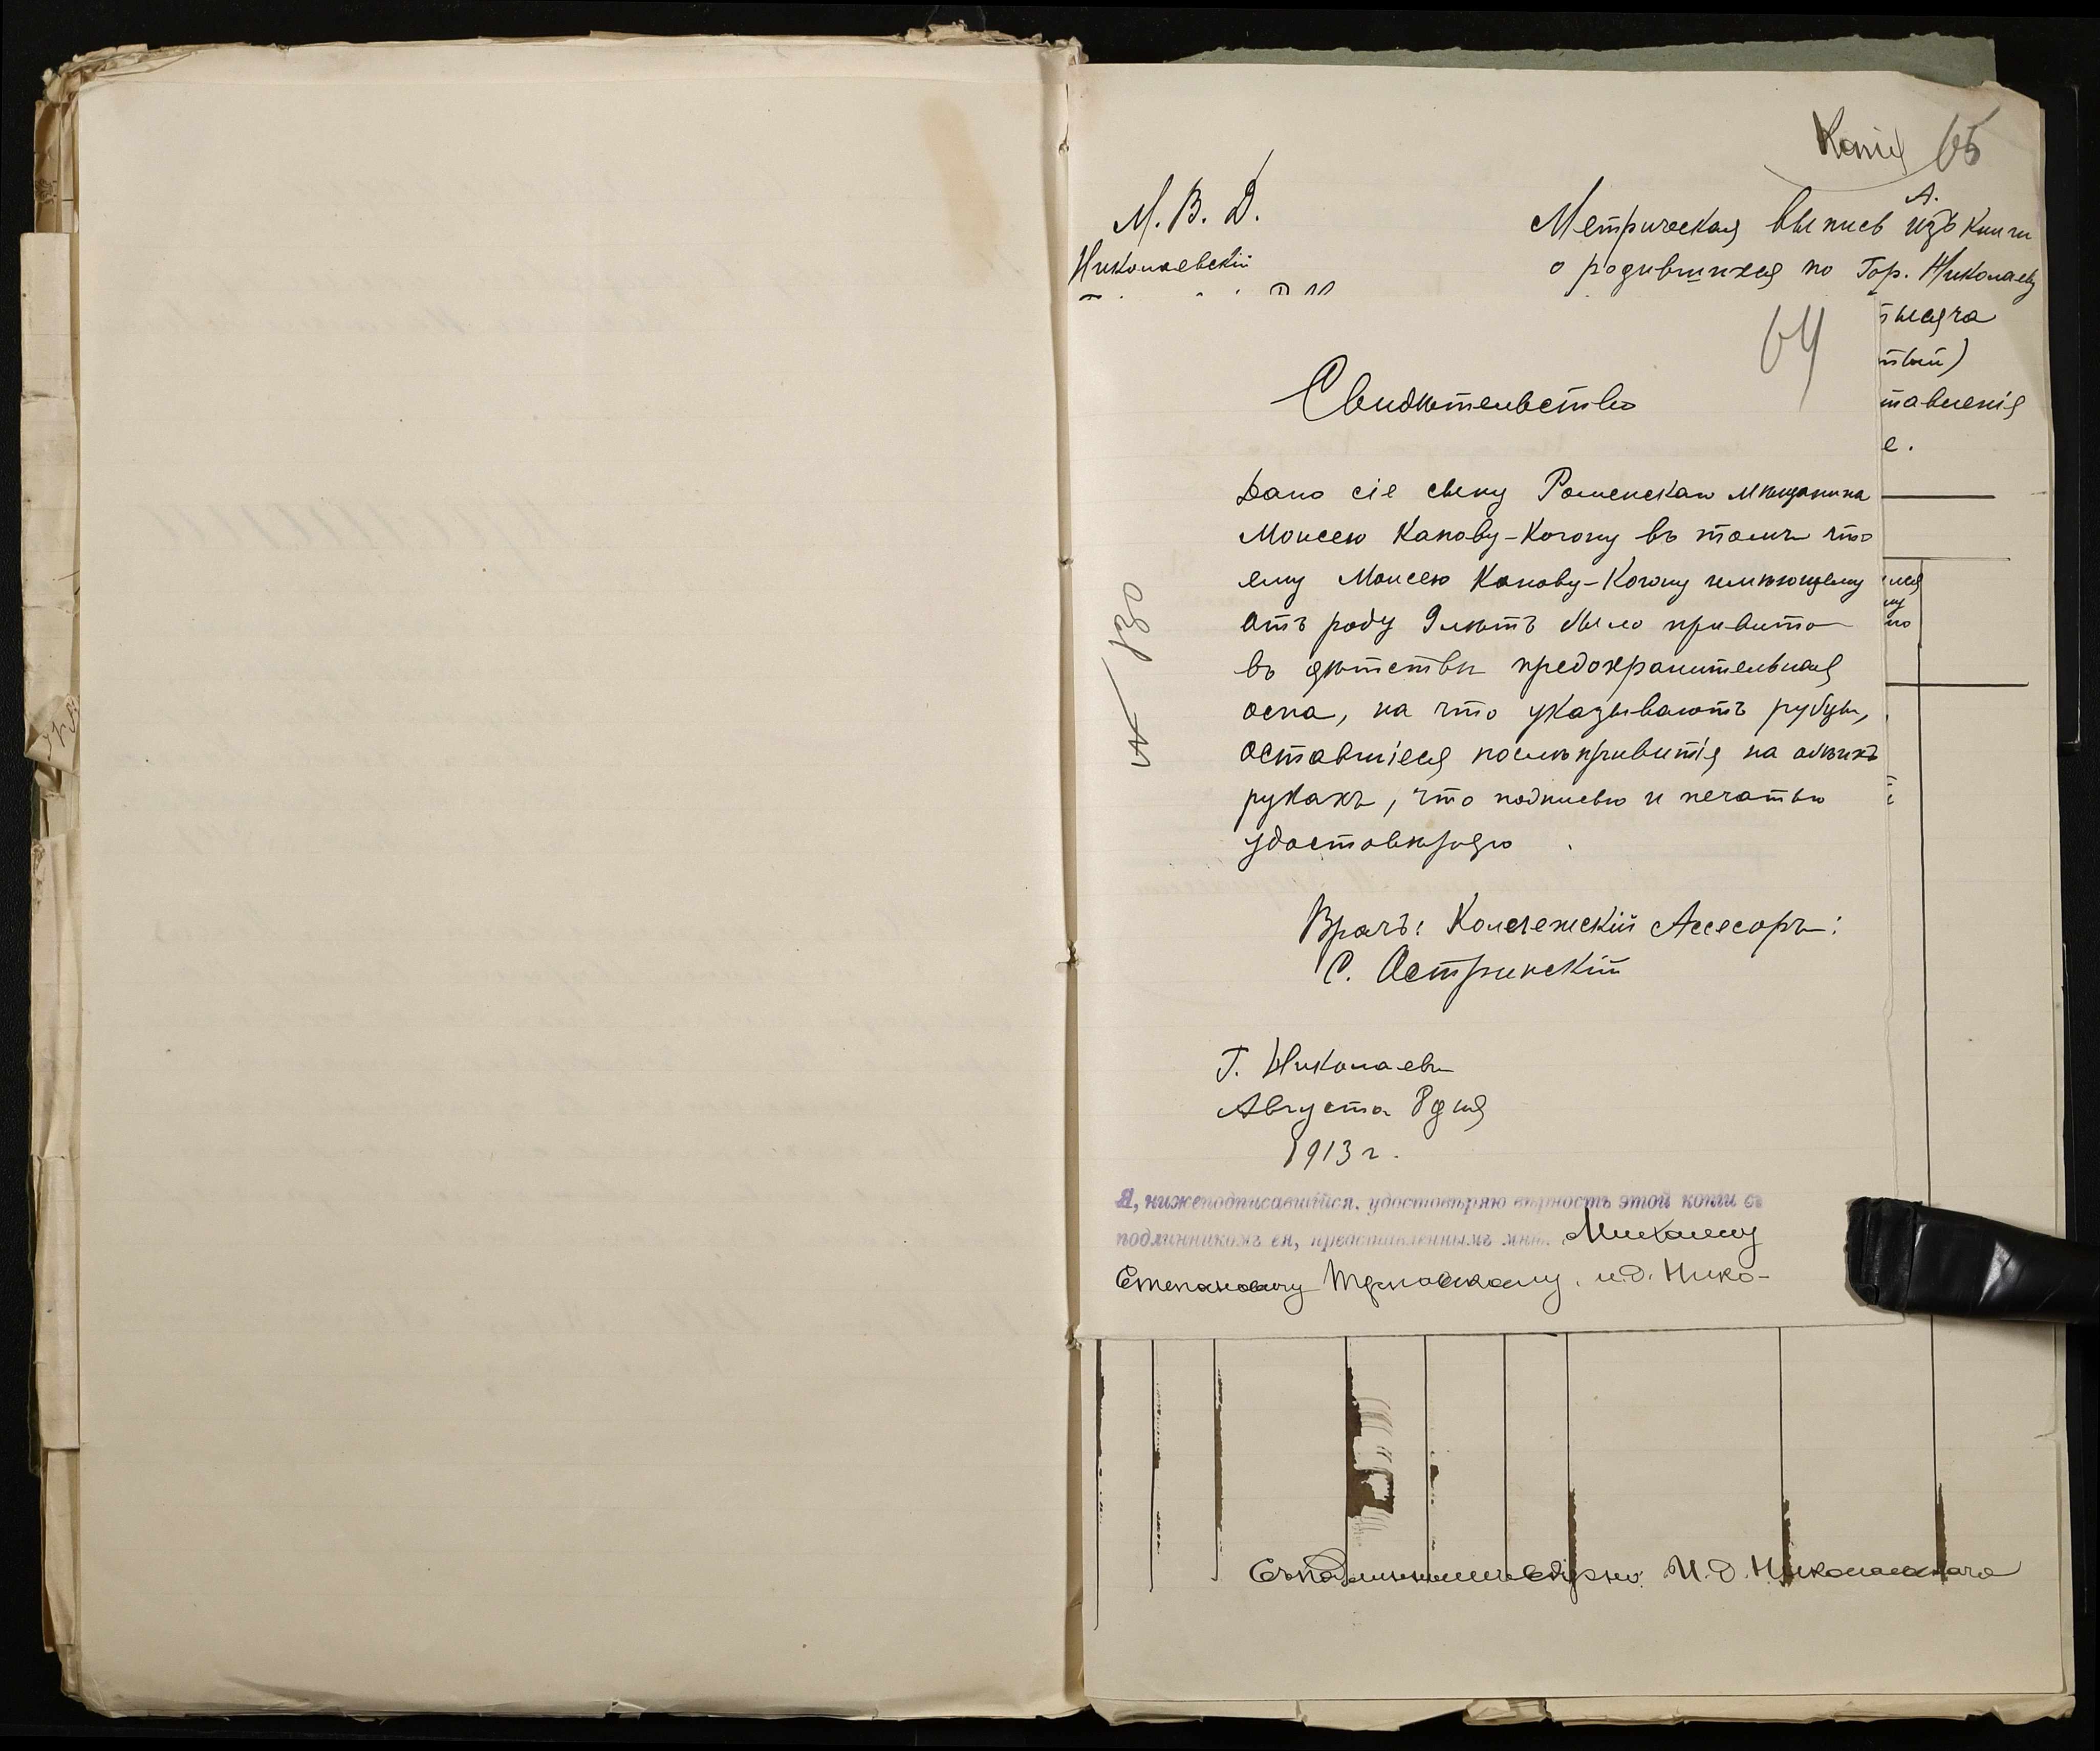 Копія 65
М. В. Д.
Николаевскій
А.
Метрическая выпись изъ книги
о родившихся по Гор. Николаеву
тысяча
тавленія
е.
64
Свидѣтельство
Дано сіе сыну Роменскаго мѣщанина
Моисею Капову-Когону въ томъ что
ему Моисею Канову-Когону имѣющему
отъ роду 9 лѣтъ было привито
въ дѣтствѣ предохранительная
оспа, на что указываютъ рубцы,
оставшіеся послѣ привитія на обѣихъ
рукахъ, что подписью и печатью
удостовѣряю.
Врачъ: Коллежскій Ассесоръ:
С. Остринскій
Г. Николаевъ
Августа 8 дня
1913 г.
№ 130
Я, нижеподписавшійся, удостовѣряю вѣрность этой копіи съ
подлинникомъ ея, представленнымъ мнѣ, Михаилу
Степановичу Терновскому, и.д. Нико-
Съ подлиннымъ вѣрно. И.д. Николаевскаго